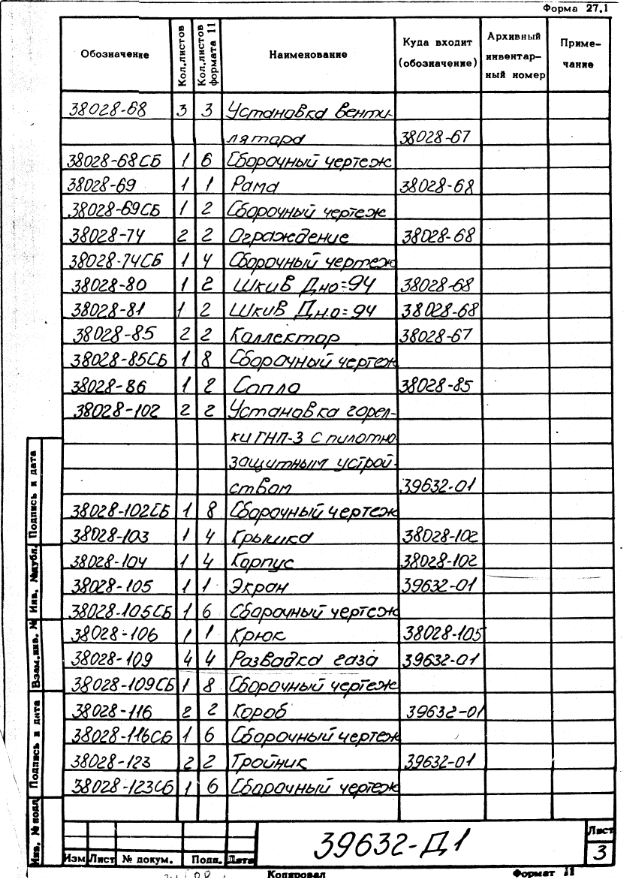 Форма 27.1
Обозначение Кол.листов Кол.листов формата 11 Наименование Куда входит (обозначение) Архивный инвентарный номер Примечание
38028-68 3 3 Установка венти-
лятора 38028-67
38028-68СБ 1 6 Сборочный чертеж
38028-69 1 1 Рама 38028-68
38028-69СБ 1 2 Сборочный чертеж
38028-74 2 2 Ограждение 38028-68
38028-74СБ 1 4 Сборочный чертеж
38028-80 1 2 Шкив Дно=94 38028-68
38028-81 1 2 Шкив Дно=94 38028-68
38028-85 2 2 Коллектор 38028-67
38028-85СБ 1 8 Сборочный чертеж
38028-86 1 2 Сопло 38028-85
38028-102 2 2 Установка горел-
ки ГНП-3 с пилотно
защитным устрой-
ством 39632-01
38028-102СБ 1 8 Сборочный чертеж
38028-103 1 4 Крышка 38028-102
38028-104 1 4 Корпус 38028-102
38028-105 1 1 Экран 39632-01
38028-105СБ 1 6 Сборочный чертеж
38028-106 1 1 Крюк 38028-105
38028-109 4 4 Разводка газа 39632-01
38028-109СБ 1 8 Сборочный чертеж
38028-116 2 2 Короб 39632-01
38028-116СБ 1 6 Сборочный чертеж
38028-123 2 2 Тройник 39632-01
38028-123СБ 1 6 Сборочный чертеж
Подпись и дата
Инв. №дубл.
Взам.инв. №
Подпись и дата
Инв. № подл
Изм Лист № докум. Подп. Дата
39632-Д1
Лист
3
Копировал Формат 11